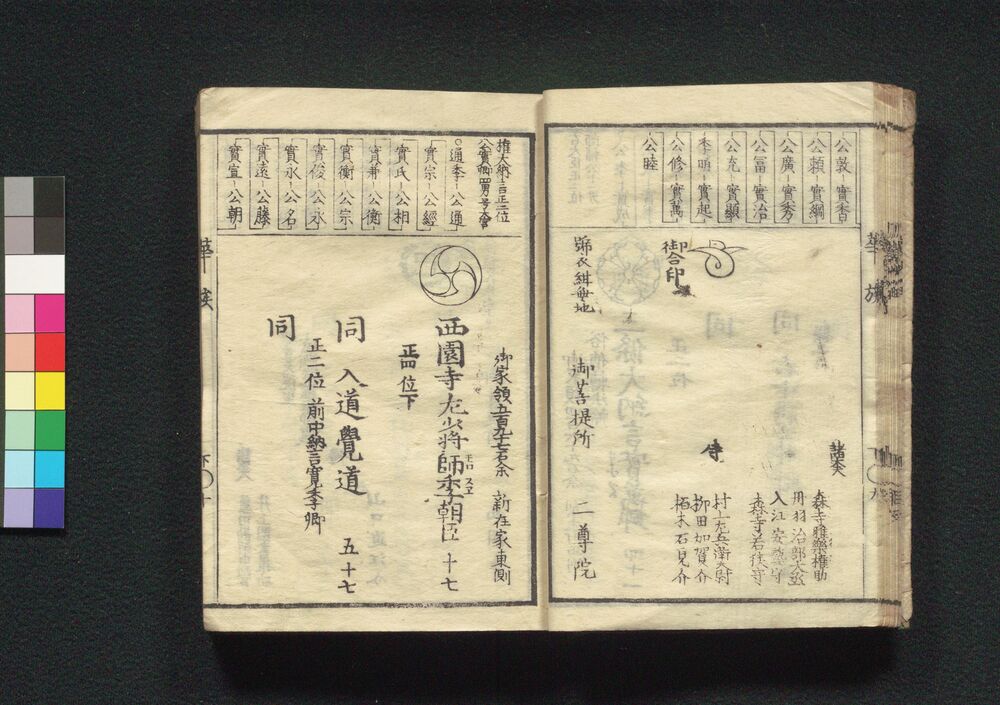 公敦－實香
公頼－實綱
公廣－實秀
公冨－實治
公充－實顯
季明－實起
公修－實萬
公睦
御合印
諸太夫
森寺雅樂權助
丹羽治部大丞
入江安藝守
森寺若狭守
侍
村上左兵衛大尉
柳田加賀介
栢木石見介
御菩提所　二尊院
華族
九
權大納言正二位
通季－公通
實宗－公經
實氏－公相
實兼－公衡
實衡－公宗
實俊－公永
實永－公名
實遠－公藤
實宣－公朝
御家領五百九十七石余　新在家東側
西園寺左少將師季朝臣　十七
モロ　スヱ
正四位下
同　入道覺道　五十七
正二位　前中納言寛季卿
同
華族
十